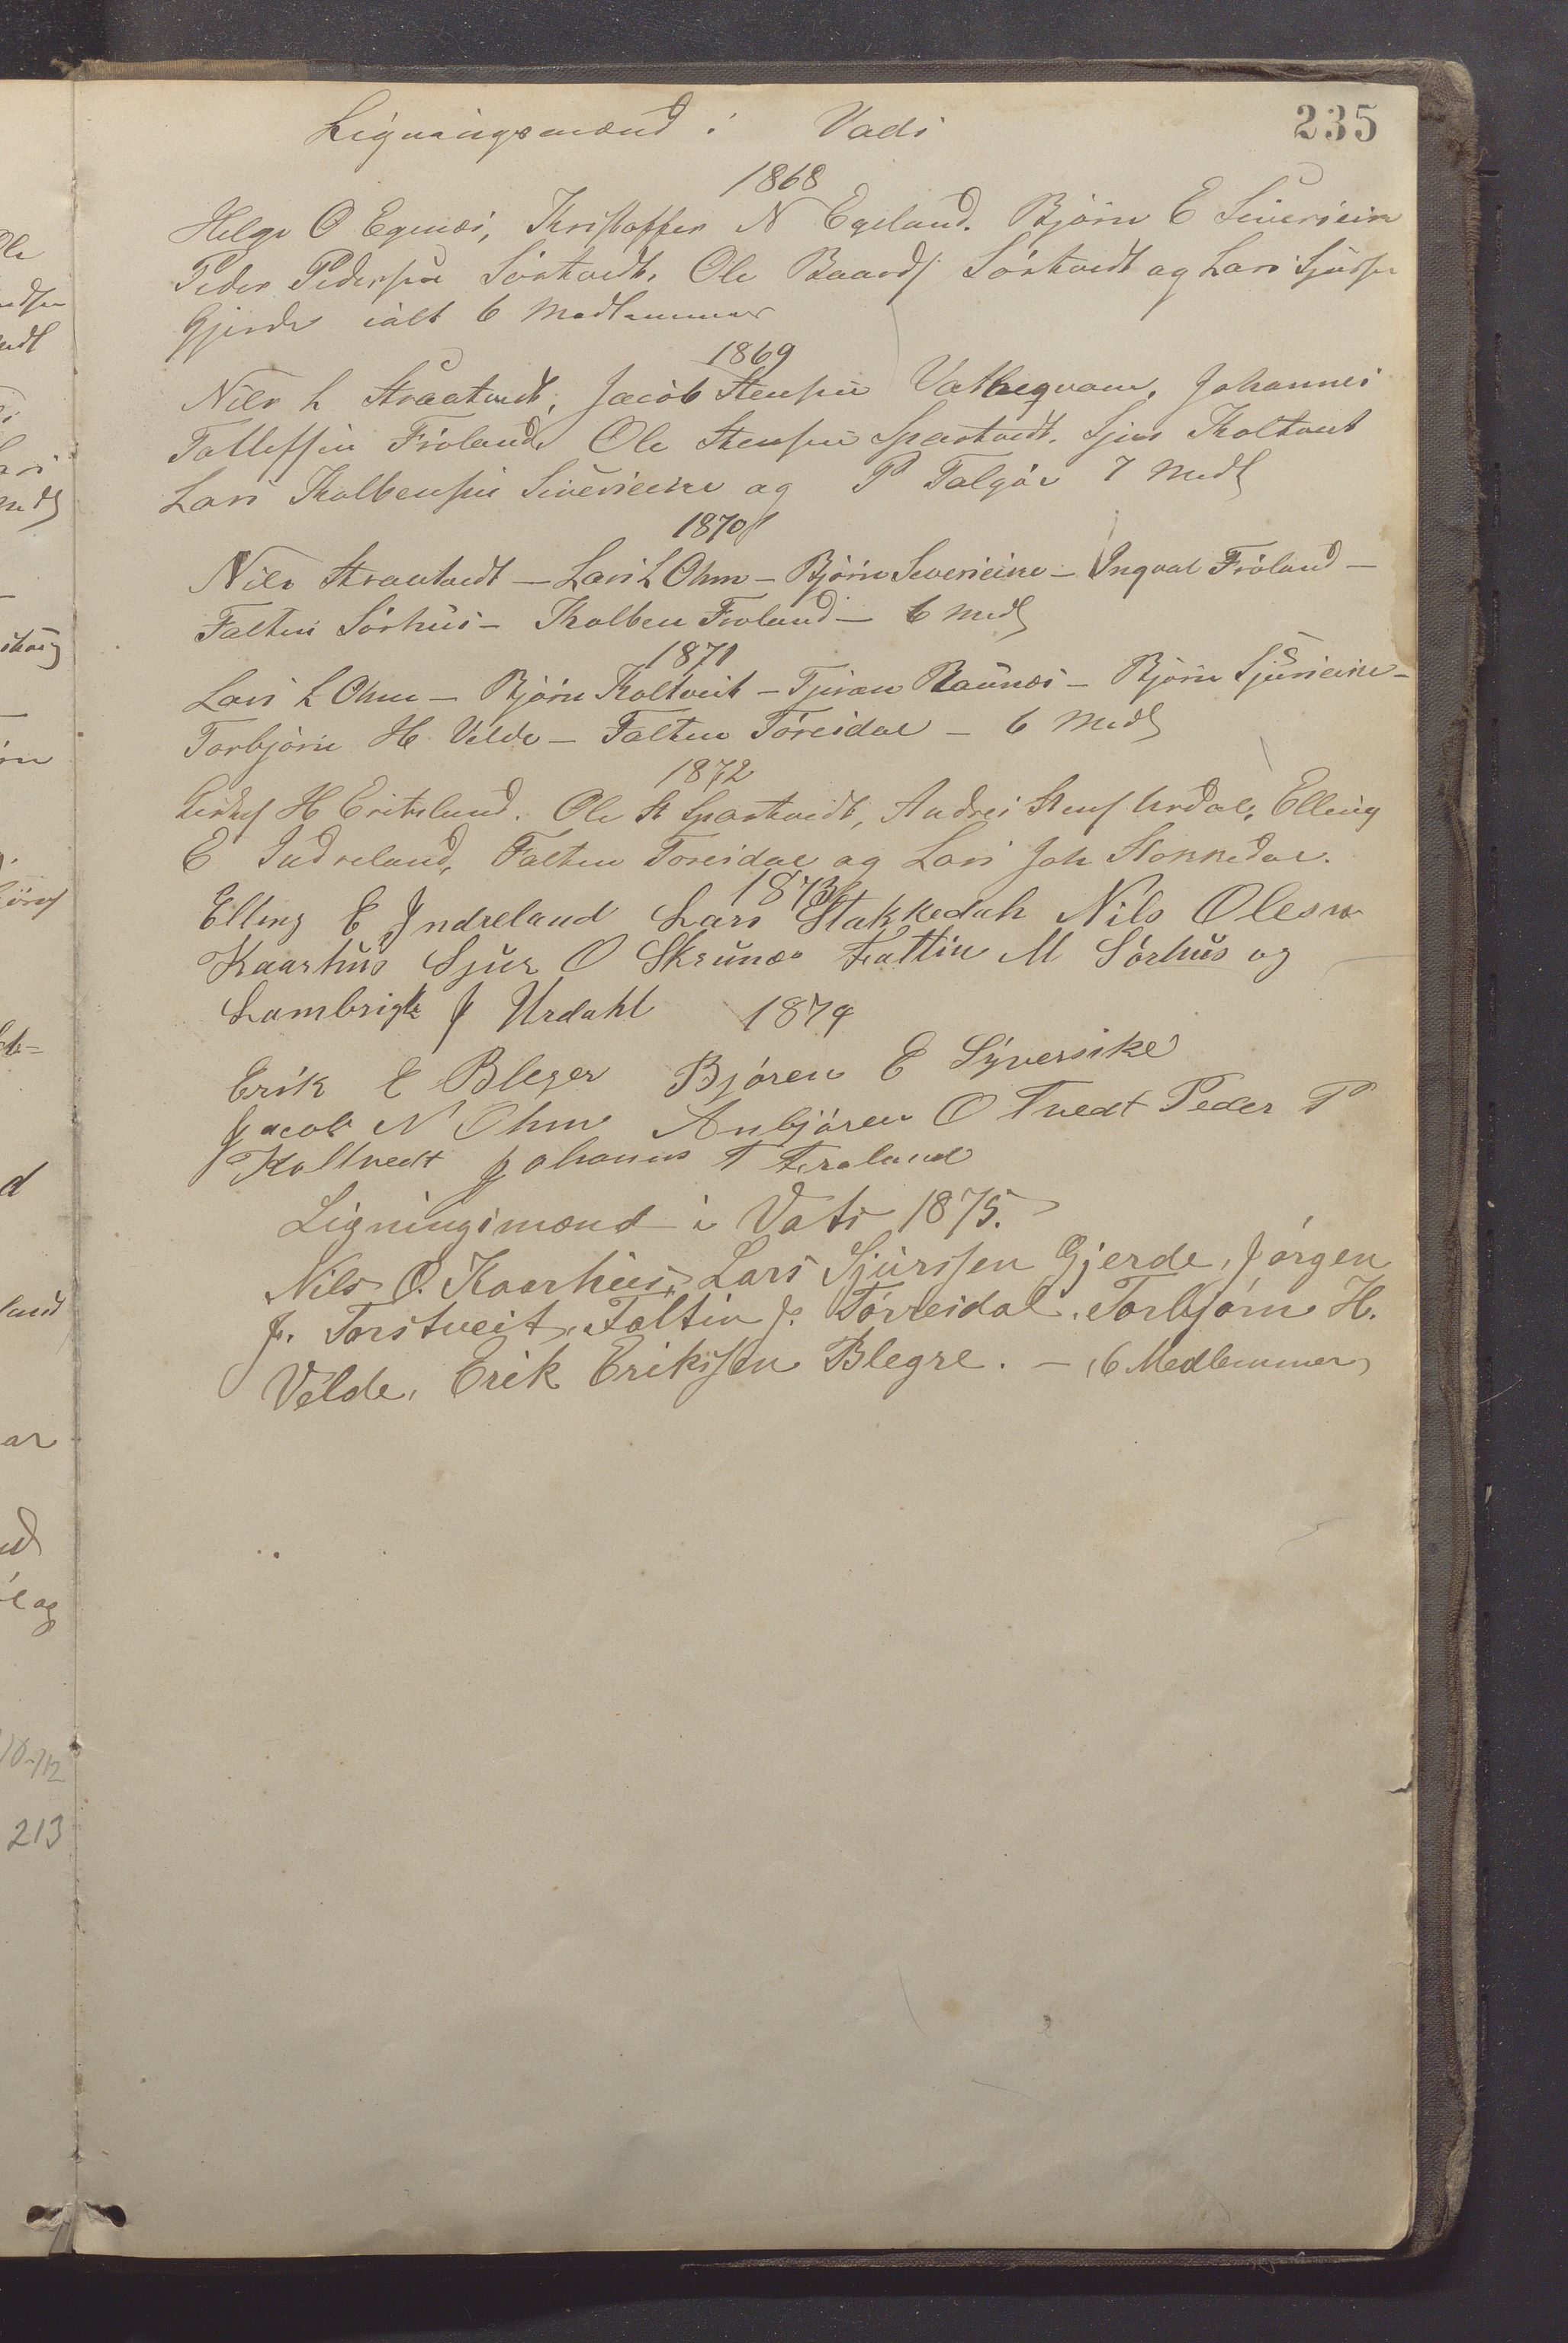 235
Ligningsmænd i Vads
1868
Helge O Egenæs, Kristoffer N Egeland. Bjørn E Siverseire
Peder Pedersen Sørtvedt, Ole Baards Sørtvedt og Lars Sjursen
Gjerde ialt 6 Medlemmer
1869
Nils L Straatvedt, Jacob Stensen Vathegvam, Johannes
Tollefsen Frøland Ole Stensen Spartvedt. Sjur Koltvet
Lars Kolbensen Siverseire og P Talgøe 7 Medl
1870
Nils Straatvedt — Lars L Ohm — Bjørn Severseire — Ingval Frøland —
Falten Sørhus — Kolben Froland — 6 Medl
1871
Lars L Ohm — Bjørn Koltveit — Tjeran Raunæs — Bjørn Sjurseire —
Torbjørn H Velde — Falten Tøreidal — 6 Medl
1872
H Eritsland. Ole St Spartvedt, Andres Stens Urdal, Elling
E Indreland, Falten Toreidal og Lars Joh Stokkedal.
1873
Elling E Indreland Lars Stakkedah Nils Olesen
Kaarhus Sjur O Skrunæs Faltin M Sørhus og
Lambrigt J Urdahl 1874
Erik E Bleger Bjøren E Syverseke
Jacob N Ohm Anbjøren O Tvedt Peder P
Koltvedt Johanes T Froland
Ligningsmænd i Vats 1875.
Nils O. Kaarhus, Lars Sjurssen Gjerde, Jørgen
J. Torstveit, Faltin J. Tørreidal. Torbjørn H.
Velde, Erik Erikssen Blegre. — 6 Medlemmer
213